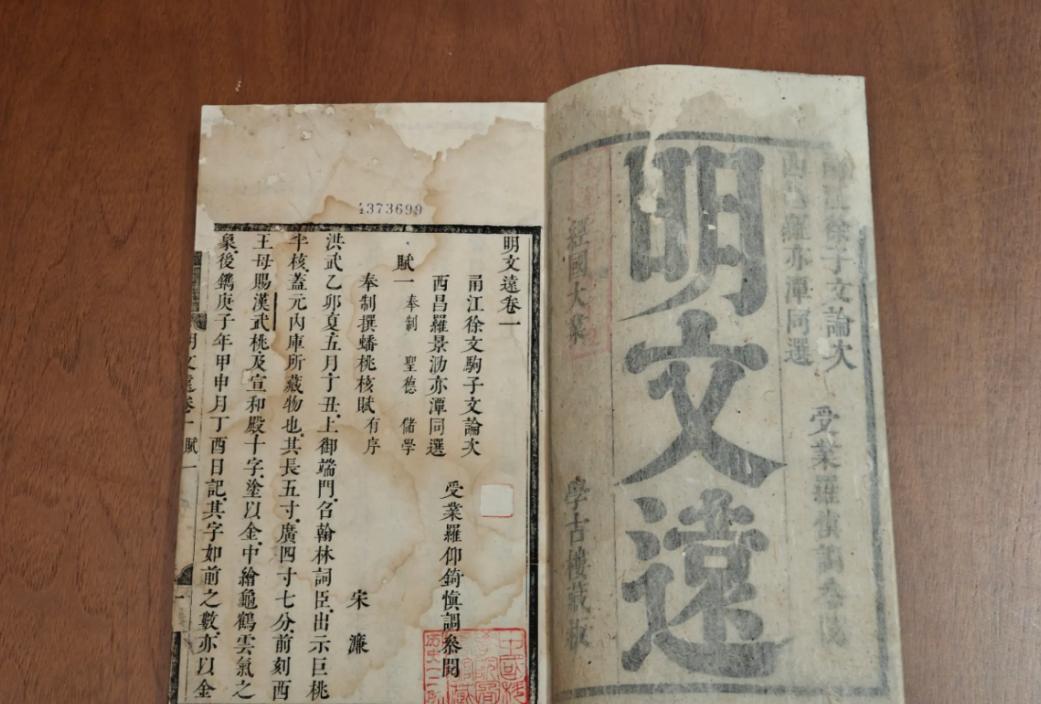 甬江徐子文論次
西昌羅亦潭同選
受業羅愼調參閱
明文遠
經國大業
學古樓藏板
4373699
明文遠卷一
甬江徐文駒子文論次
西昌羅景泐亦潭同選
受業羅仰錡愼調參閱
賦一
奉制 聖德 儲學
奉制撰蟠桃核賦有序
宋濂
洪武乙卯夏五月丁丑上御端門召翰林詞臣出示巨桃
半核蓋元內庫所藏物也其長五寸廣四寸七分前刻西
王母賜漢武桃及宣和殿十字塗以金中繪龜鶴雲氣之
象後鐫庚子年甲申月丁酉日記其字如前之數亦以金
明文遠卷一 賦一